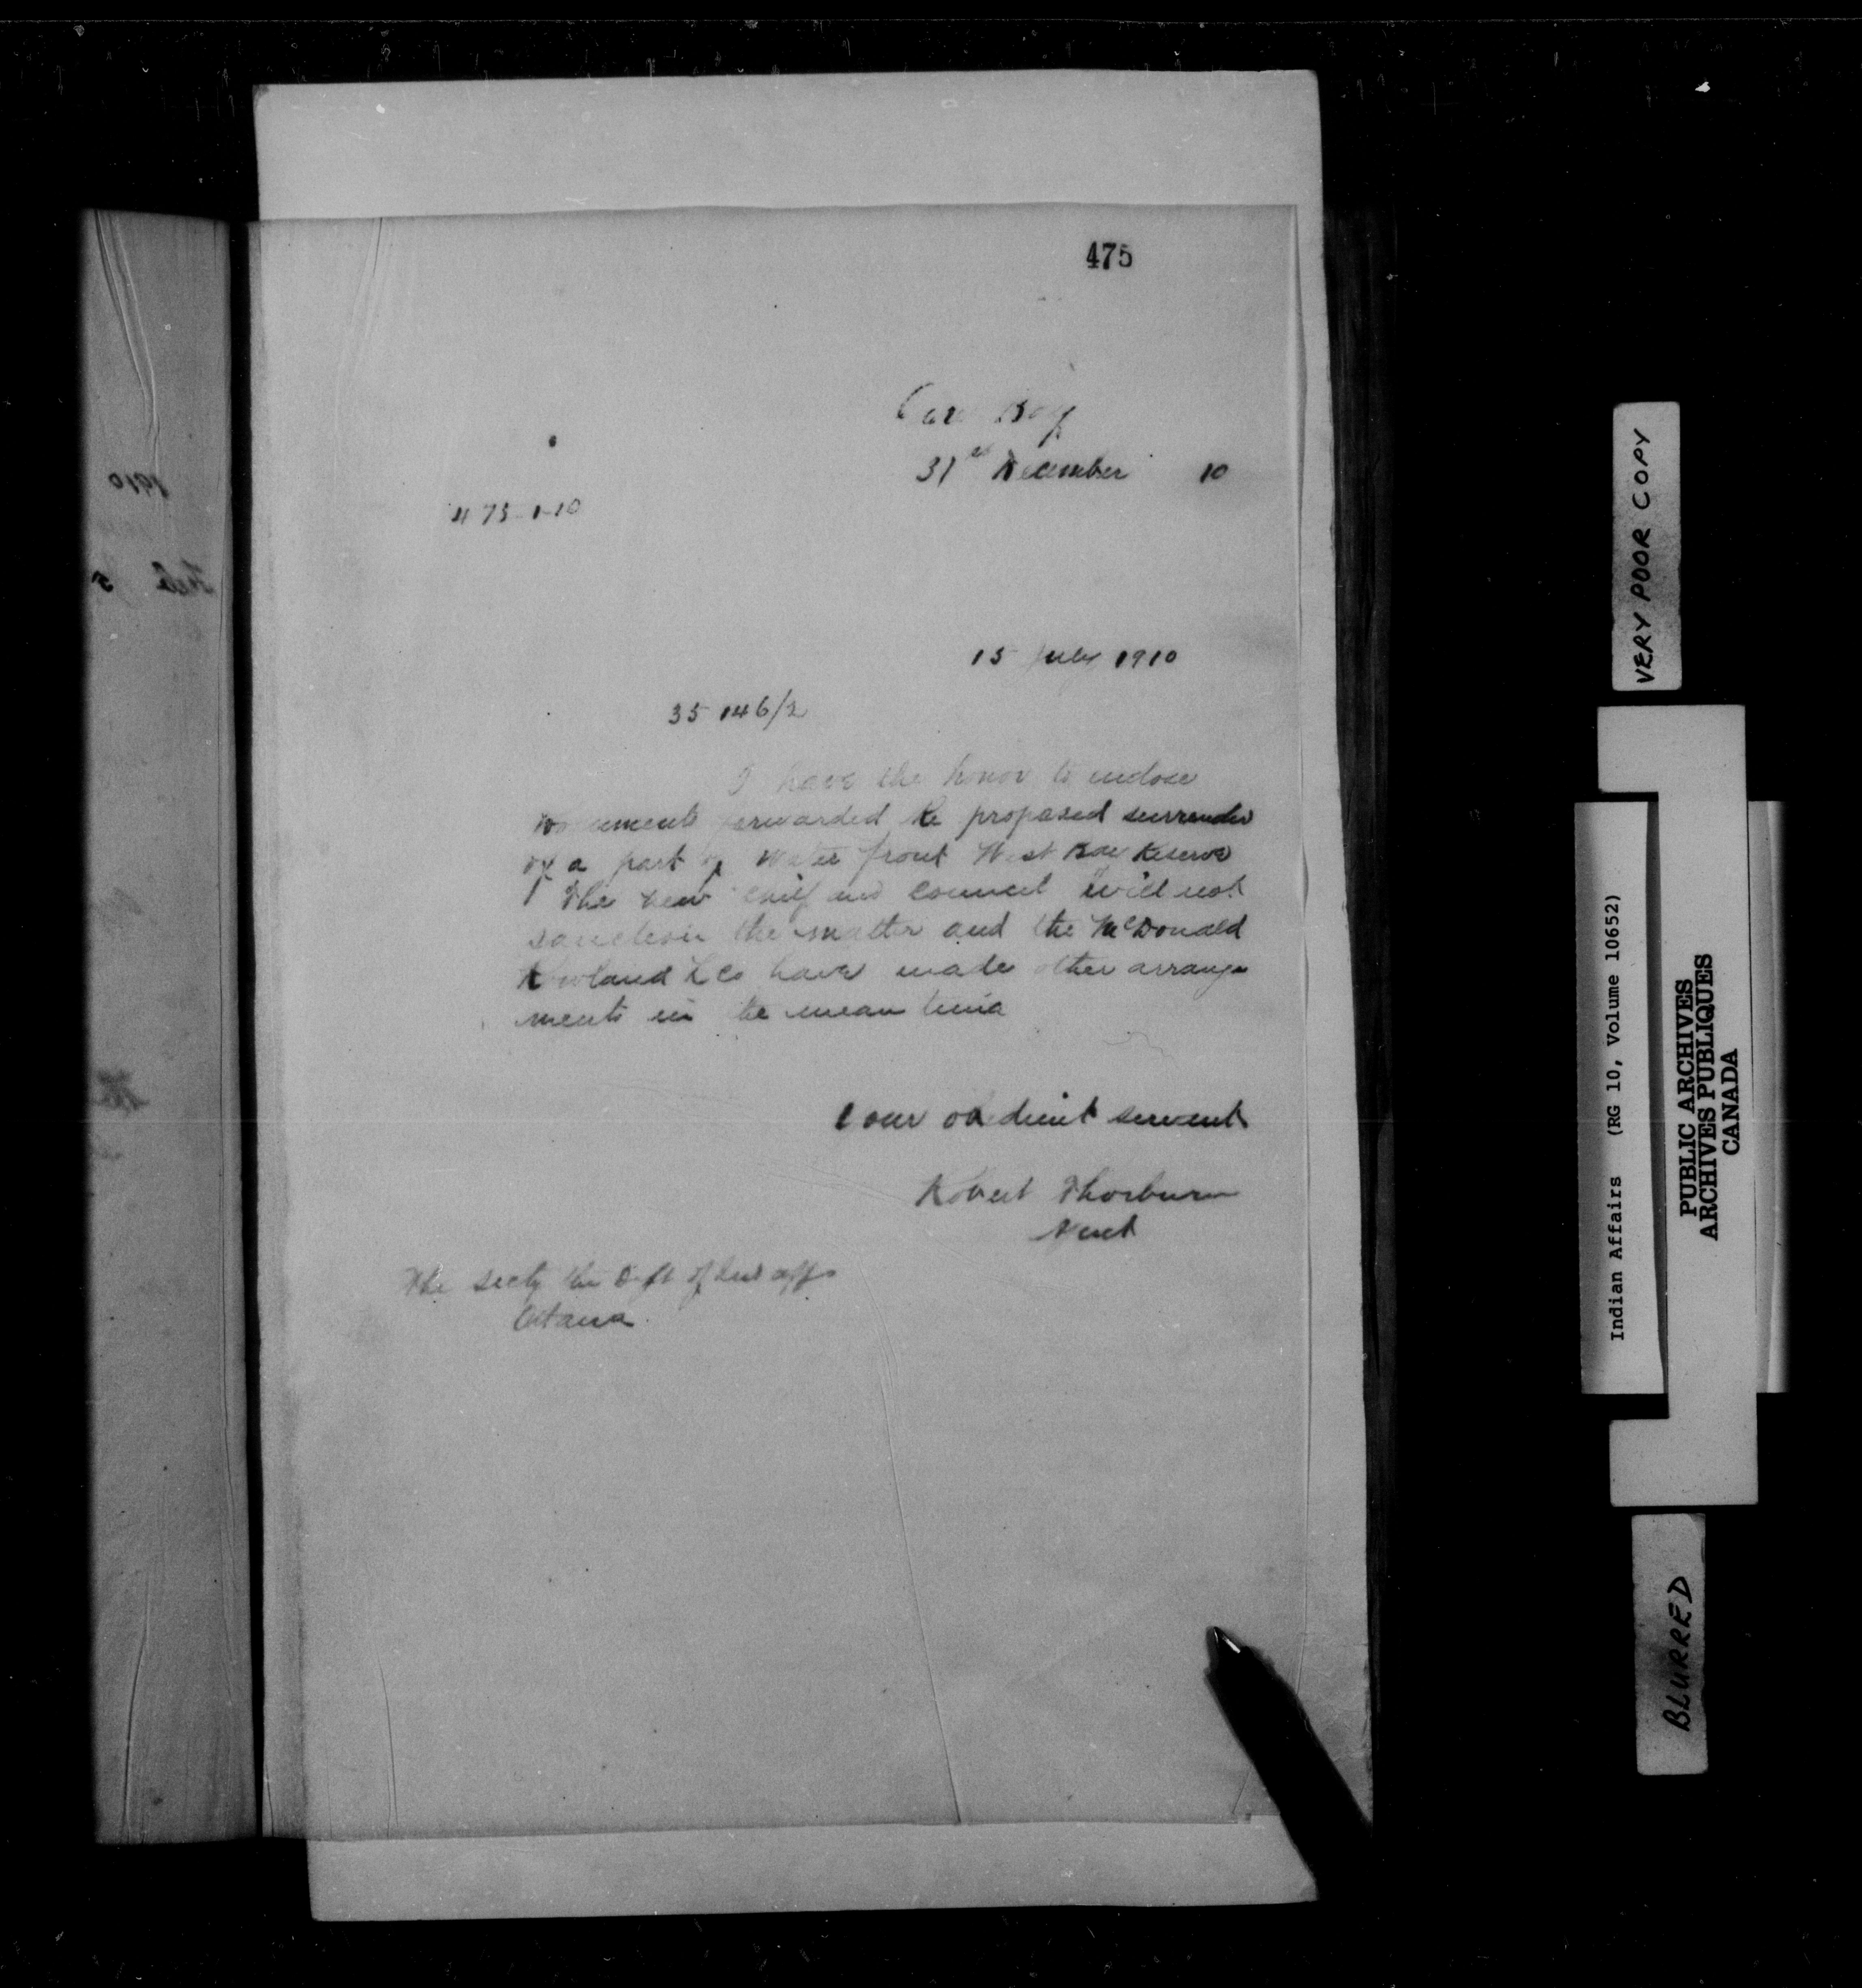 475
Bay
31st December 10
475-1-10
15 July 1910
35 146/2
I have the honor to inclose
documents forwarded Re proposed surrender
of a part of Water front West Bay Reserve
The new chief and council will not
sanction the matter and the McDonald
L Co have made other arrange
ments in the mean time
Your obedient servant
Robert Thorburn
Agent
The Secty the Dept of Ind affs
Ottawa
1910
Feb 5
VERY POOR COPY
Indian Affairs (RG 10, Volume 10652)
PUBLIC ARCHIVES
ARCHIVES PUBLIQUES
CANADA
BLURRED